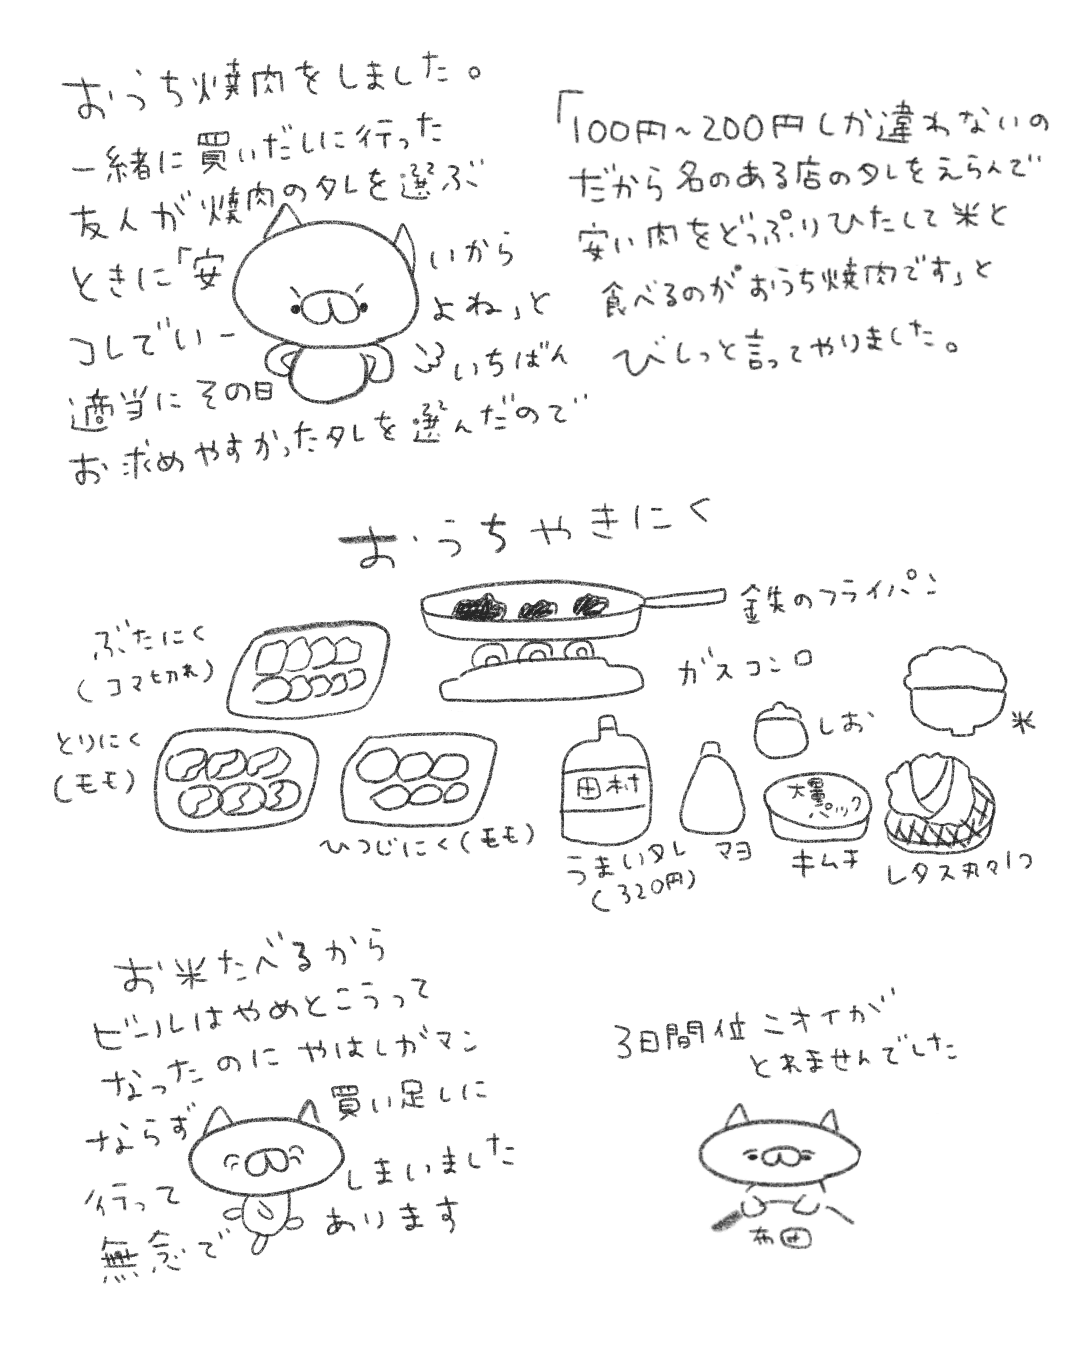 おうち焼肉をしました。
一緒に買いだしに行った
友人が焼肉のタレを選ぶ
ときに「安いから
コレでいーよね」と
適当にその日いちばん
お求めやすかったタレを選んだので
「100円~200円しか違わないの
だから名のある店のタレをえらんで
安い肉をどっぷりひたして米と
食べるのがおうち焼肉です」と
びしっと言ってやりました。
おうちやきにく
鉄のフライパン
ぶたにく
(コマ切れ)
ガスコンロ
米
しお
とりにく
(モモ)
ひつじにく(モモ)
田村
うまいタレ
(320円)
マヨ
大量
パック
キムチ
レタス丸々1つ
お米たべるから
ビールはやめとこうって
なったのにやはしがマン
ならず買い足しに
行ってしまいました
無念であります
3日間位ニオイが
とれませんでした
布田